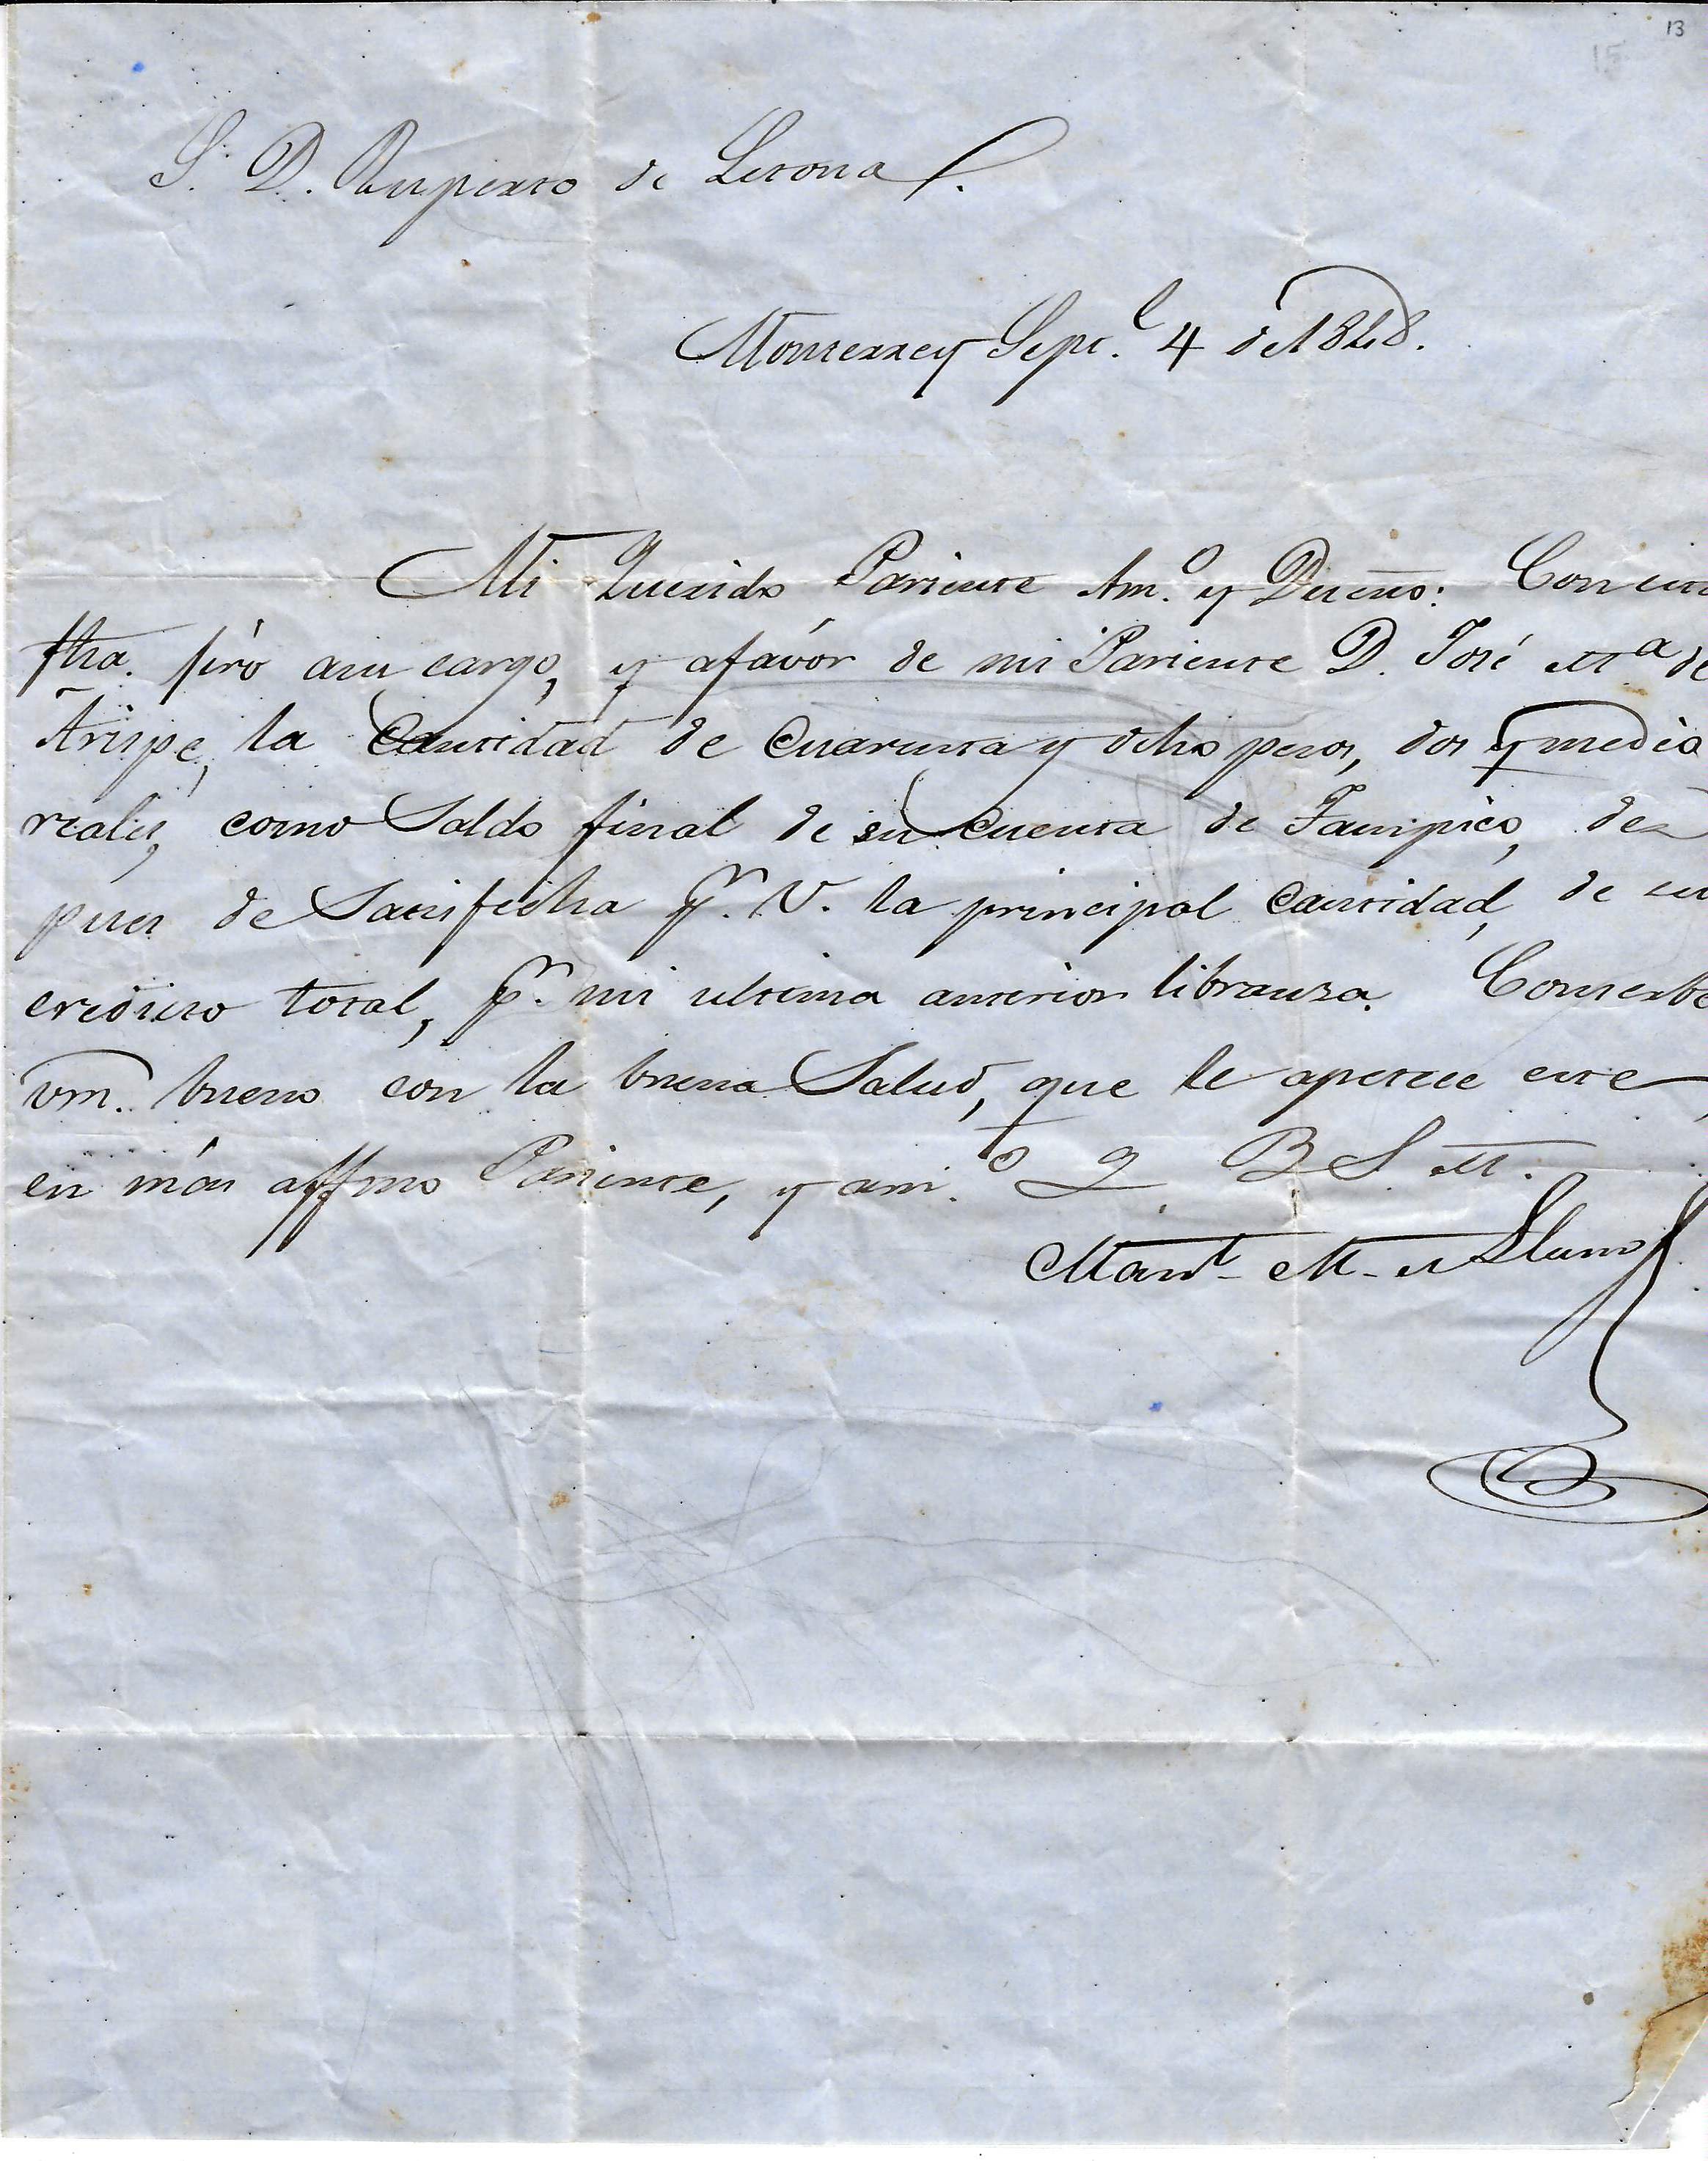 13
15
S. D. Ruperto de Letona
Monterrey Sept.e 4 de 1848.
Mi Querido Pariente Am.o y Dueño: Con esta
fha. jiro asu cargo, y afavór de mi Pariente D. José Ma de
Arispe, la Cantidad de Cuarenta y ocho pesos, dos y medio
reales, como Saldo final de su Cuenta de Tampico, des
pues de Satisfecha pr. V. la principal Cantidad, de su
credito total, pr. mi ultima anterior libranza. Conserbe
vm. bueno con la buena Salud, que le apetece este,
su más affmo Pariente, y am.o Q B S M.
Man.l M. de Llano